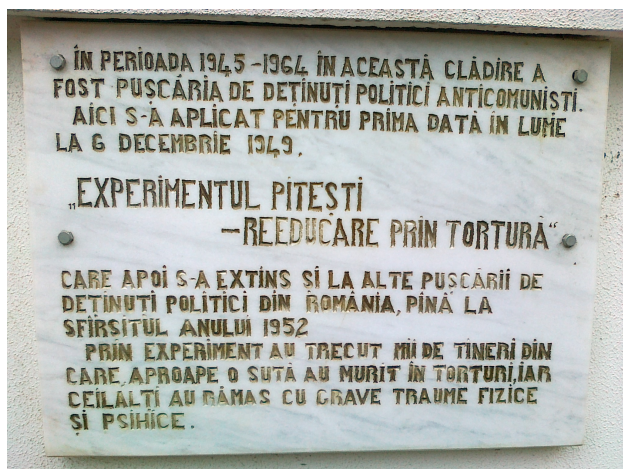 ÎN PERIOADA 1945-1964 ÎN ACEASTĂ CLĂDIRE A
FOST PUȘCĂRIA DE DEȚINUȚI POLITICI ANTICOMUNIȘTI.
AICI S-A APLICAT PENTRU PRIMA DATĂ ÎN LUME
LA 6 DECEMBRIE 1949.
„EXPERIMENTUL PITEȘTI
-REEDUCARE PRIN TORTURĂ“
CARE APOI S-A EXTINS ȘI LA ALTE PUȘCĂRII DE
DEȚINUȚI POLITICI DIN ROMÂNIA, PÎNĂ LA
SFÎRȘITUL ANULUI 1952
PRIN EXPERIMENT AU TRECUT MII DE TINERI DIN
CARE, APROAPE O SUTĂ AU MURIT ÎN TORTURI,IAR
CEILALȚI AU RĂMAS CU GRAVE TRAUME FIZICE
ȘI PSIHICE.